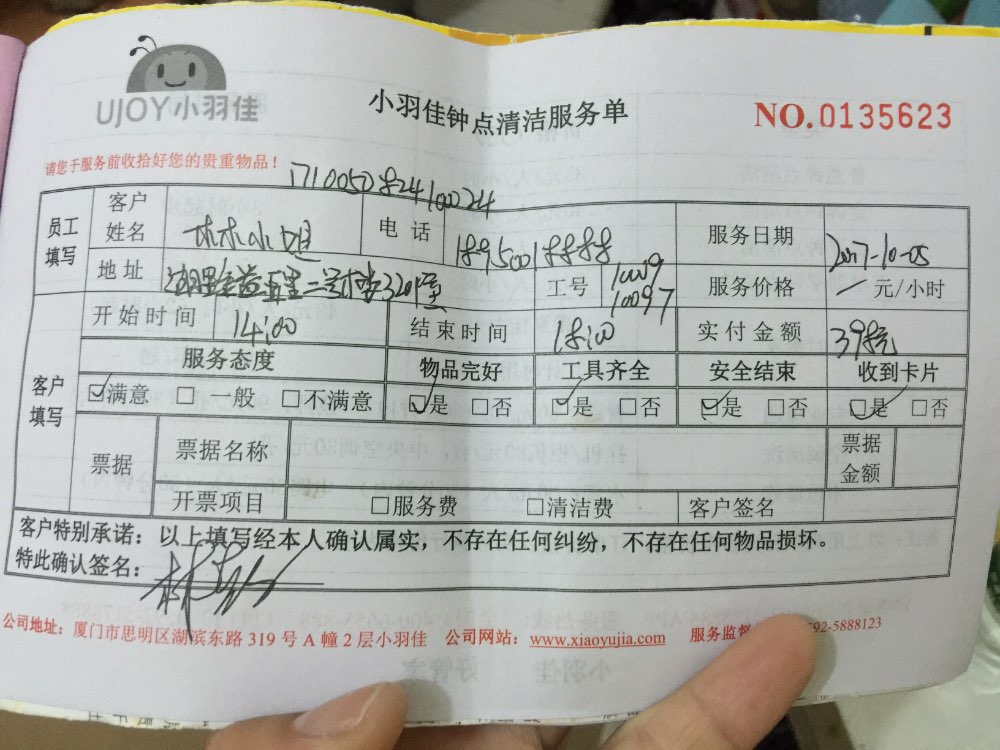 UJOY小羽佳
小羽佳钟点清洁服务单
NO.0135623
请您于服务前收拾好您的贵重物品！
员工填写 客户姓名 林小姐 电话 18950018888 服务日期 2017-10-05
地址 工号 10009 10097 服务价格 / 元/小时
开始时间 14:00 结束时间 18:00 实付金额 398元
客户填写 服务态度 物品完好 工具齐全 安全结束 收到卡片
☑满意 □一般 □不满意 ☑是 □否 ☑是 □否 ☑是 □否 ☑是 □否
票据 票据名称 票据金额
开票项目 □服务费 □清洁费 客户签名
客户特别承诺：以上填写经本人确认属实，不存在任何纠纷，不存在任何物品损坏。
特此确认签名：
公司地址：厦门市思明区湖滨东路 319 号 A 幢 2 层小羽佳 公司网站：www.xiaoyujia.com 服务监督 92-5888123